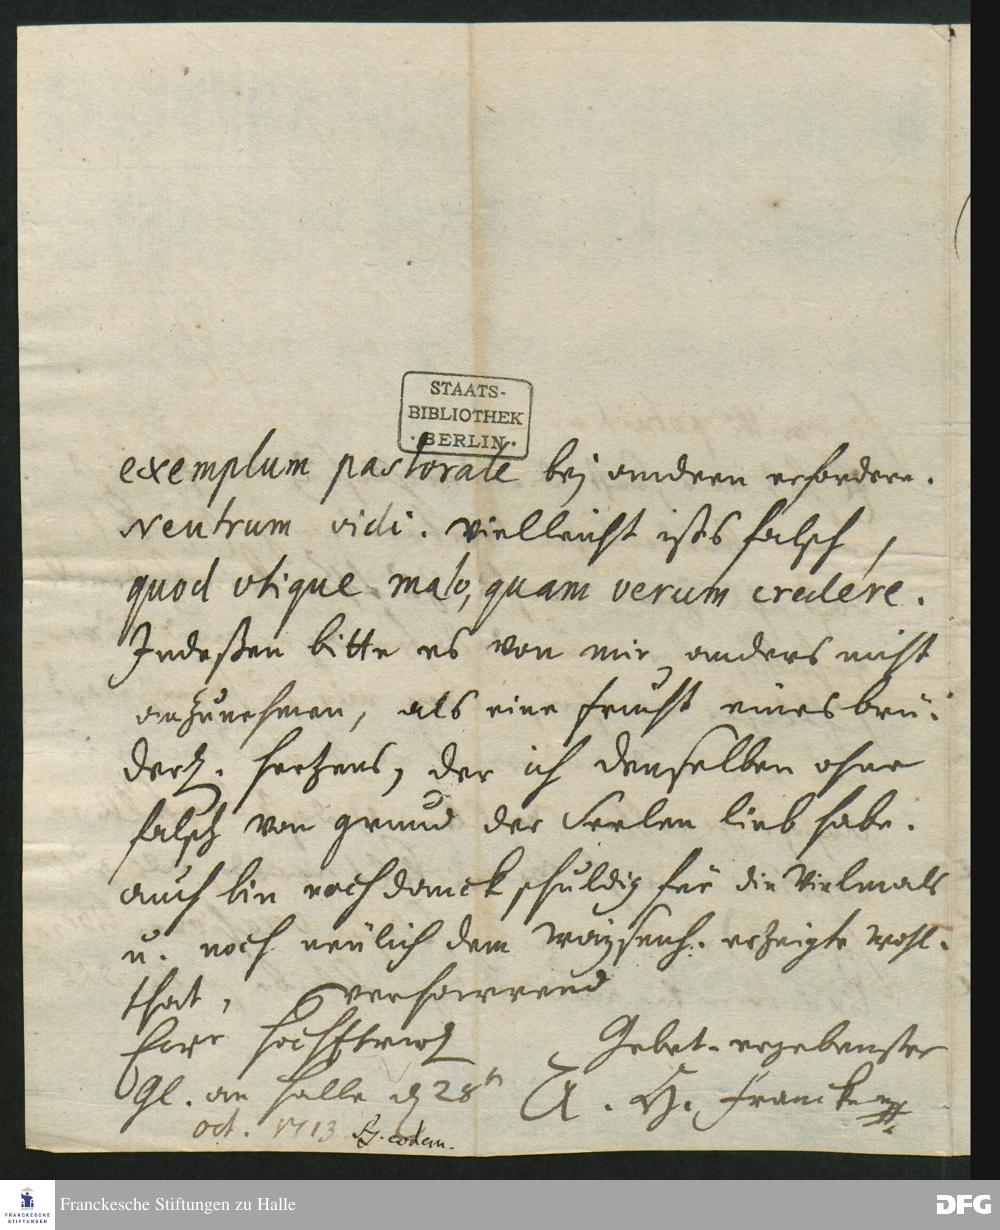 STAATS-
BIBLIOTHEK
·BERLIN·
exemplum pastorale bej andern erfordern.
Neutrum vidi. Vielleicht ists falsch,
quod utique malo, quam verum credere.
Indeßen bitte es von mir anders nicht
anzunehmen, als eine frucht eines brü-
derl. hertzens, der ich denselben ohne
falsch von grund der Seelen lieb habe.
auch bin noch danck schuldig für die Vielmals
u. noch neulich dem Waysenh. erzeigte Wohl-
that, verharrend
Ew. HochEhrw.
Gebet- ergebenster
Gl. an Halle d. 28t
A. H. Francke
oct. 1713.
eodem.
Franckesche Stiftungen zu Halle
FRANCKESCHE
STIFTUNGEN
DFG